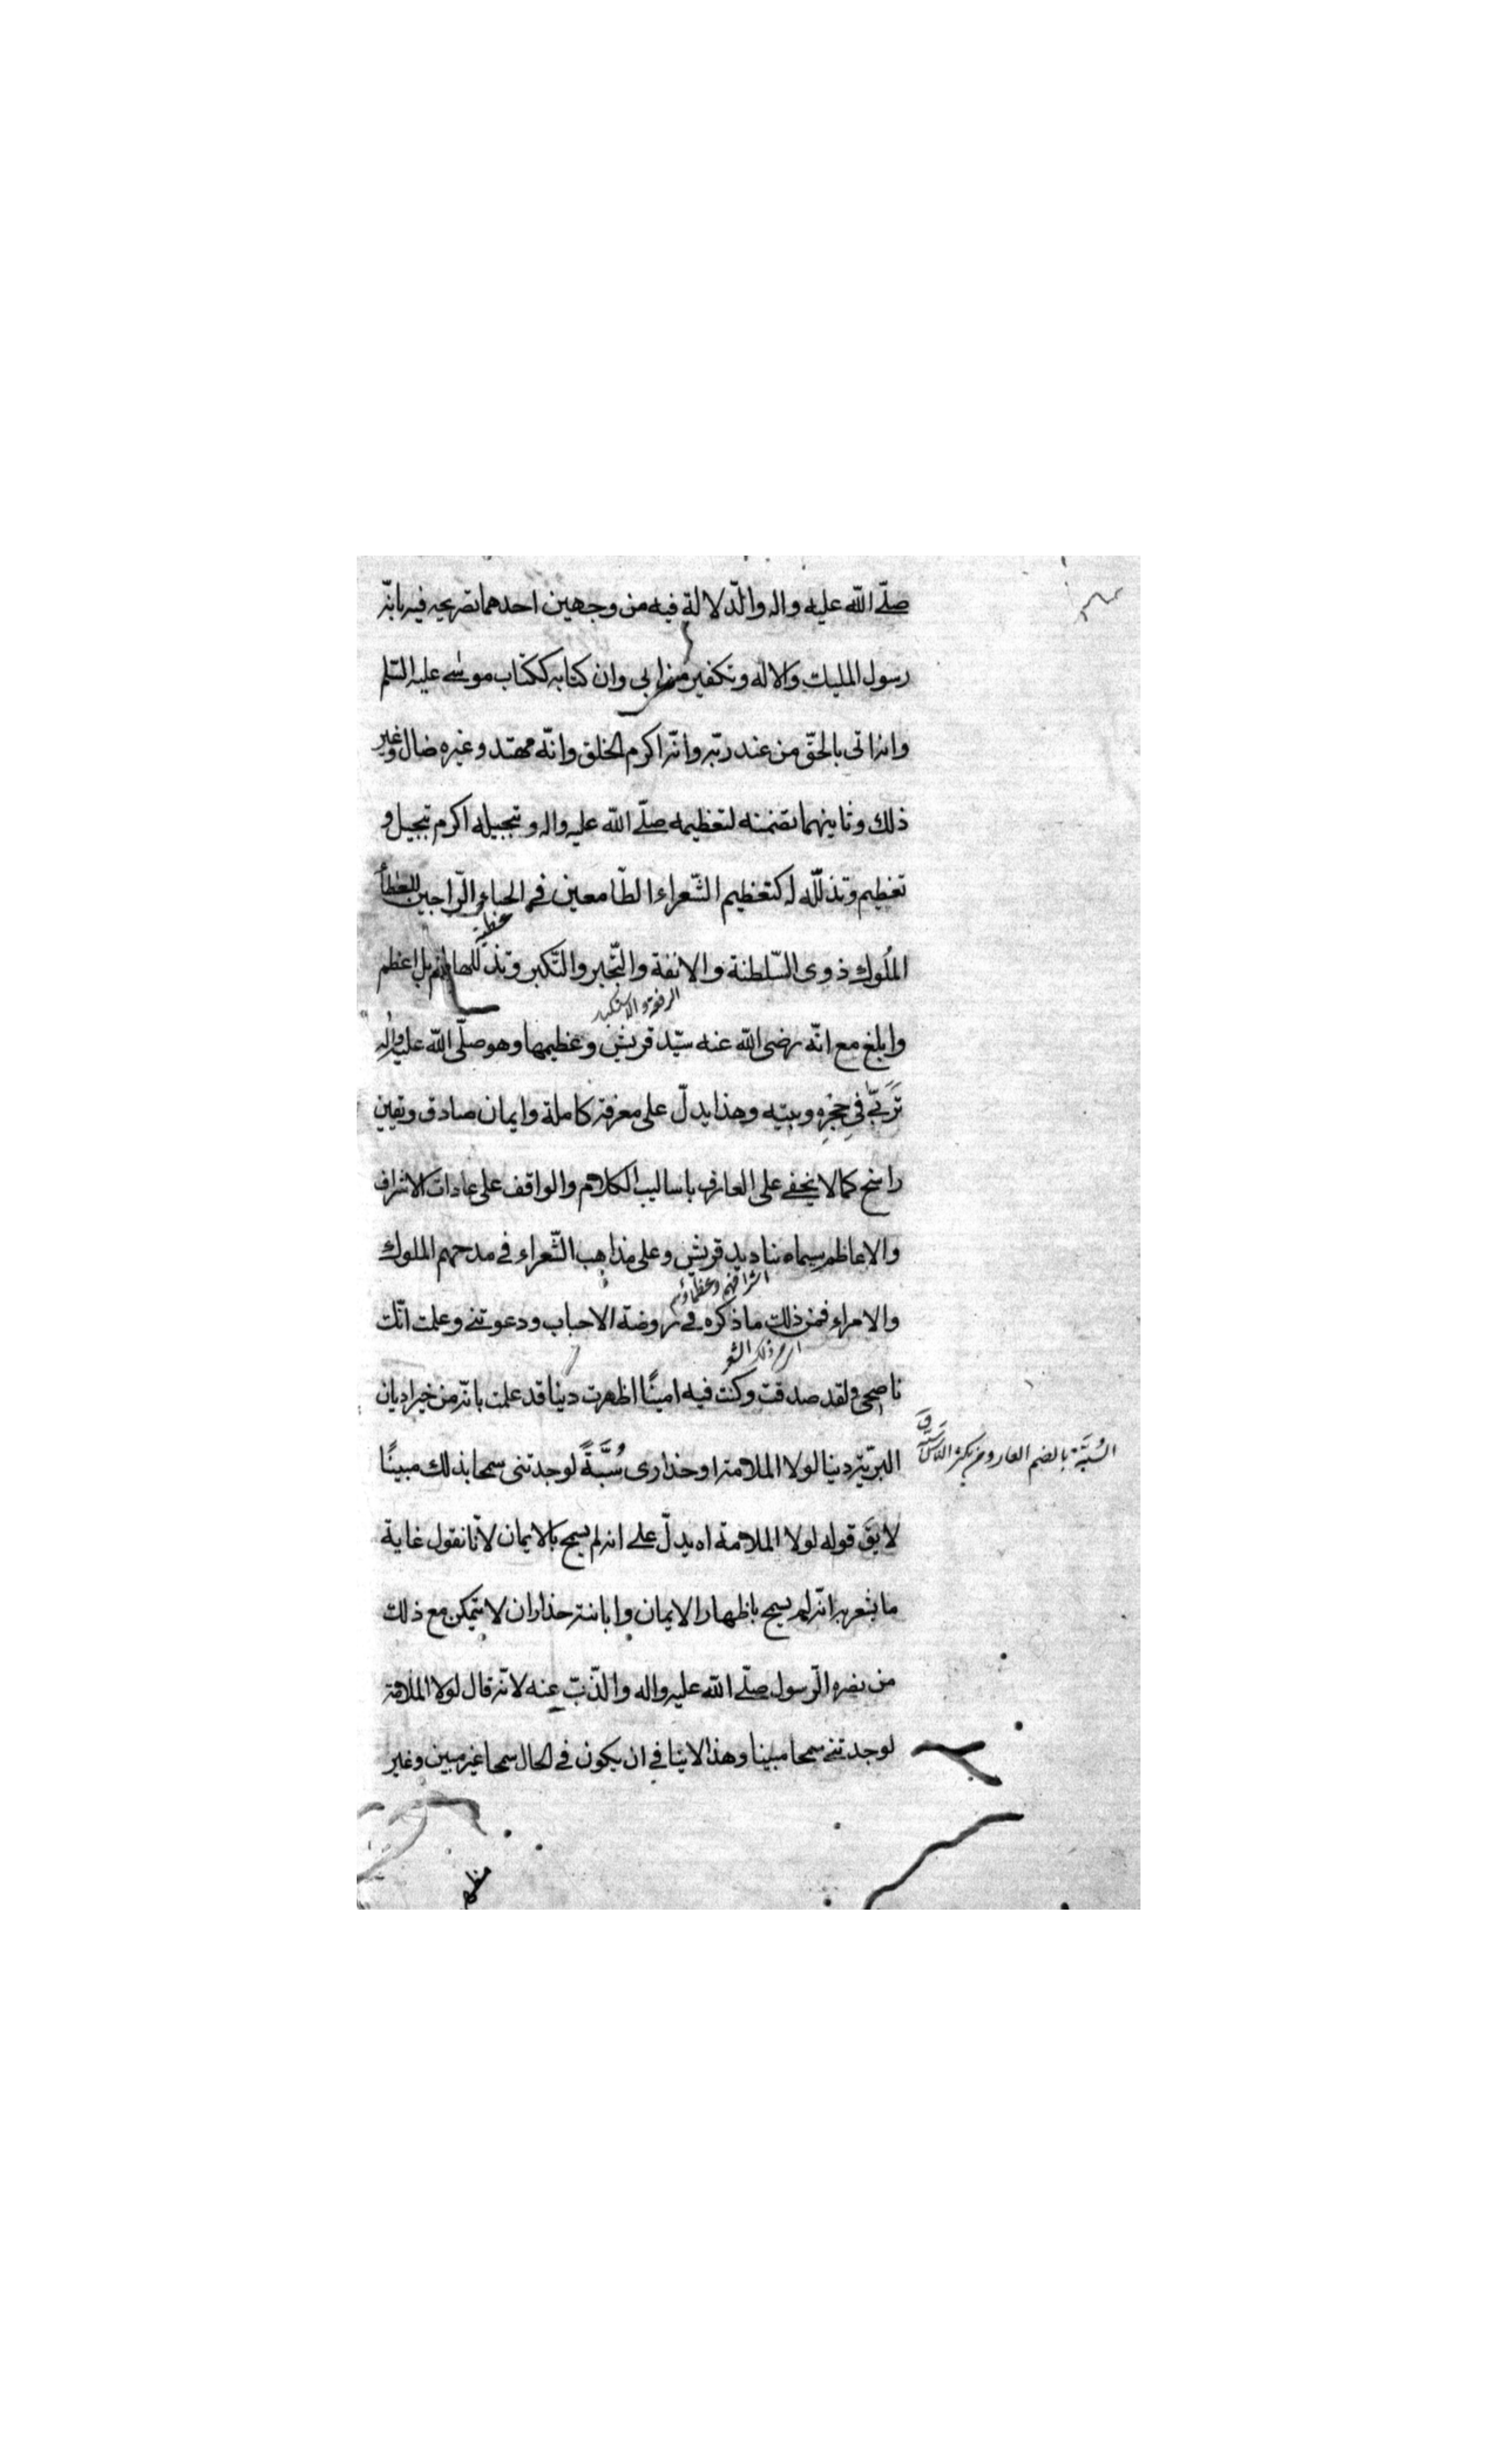 صلّى اللّه عليه واله والدّلالة فيه من وجهين احدهما تصريحه فيه بانّه
رسول المليك والاله وتكفير من ابى وان كتابه ككتاب موسى عليه السّلم
وانه اتى بالحقّ من عند ربّه وانّه اكرم الخلق وانّه مهتد وغيره ضال وغير
ذلك وثانيهما تضمنه لتعظيمه صلّى اللّه عليه واله وتبجيله اكرم تبجيل و
تعظيم وتذلّله له كتعظيم الشّعراء الطّامعين فى الحباء والرّاجين للعطاء
عظية
المُلوك ذوى السّلطنة والانفة والتّجبر والتّكبر وتذللها لهم بل اعظم
وابلغ مع انّه رضى اللّه عنه سيّد قريش وعظيمها وهو صلّى اللّه عليه واله
تَرَبّى فى حِجْرِهِ وبيته وهذا يدلّ على معرفة كاملة وايمان صادق ويقين
راسخ كما لا يخفى على العارف باساليب الكلام والواقف على عادات الاشراف
والاعاظم سيماه صناديد قريش وعلى مذاهب الشّعراء فى مدحهم الملوك
اشرافهم وعظماؤهم
والامراء فمن ذلك ما ذكره فى روضة الاحباب ودعوتنى وعلمت انّك
ناصحى ولقد صدقت وكنت فيه امينًا اظهرت دينا قد علمت بانّه من خير اديان
البريّة دينا لولا الملامة او حذارى سُبَّةً لوجدتنى سمحا بذلك مبينًا
السُبَّة بالضم العار ومن يكثر الناس سبّه ق
لا يقَ قوله لولا الملامة اه يدلّ على انه لم يسمح بالايمان لانّا نقول غاية
ما يشعر به انّه لم يسمح باظهار الايمان وابانته حذاران لا يتمكن مع ذلك
من نصره الرّسول صلّى اللّه عليه واله والذّبّ عنه لانّه قال لولا الملامة
لوجدتنى سمحا مبينا وهذا لا ينافى ان يكون فى الحال سمحا غير مبين وغير
مظهر